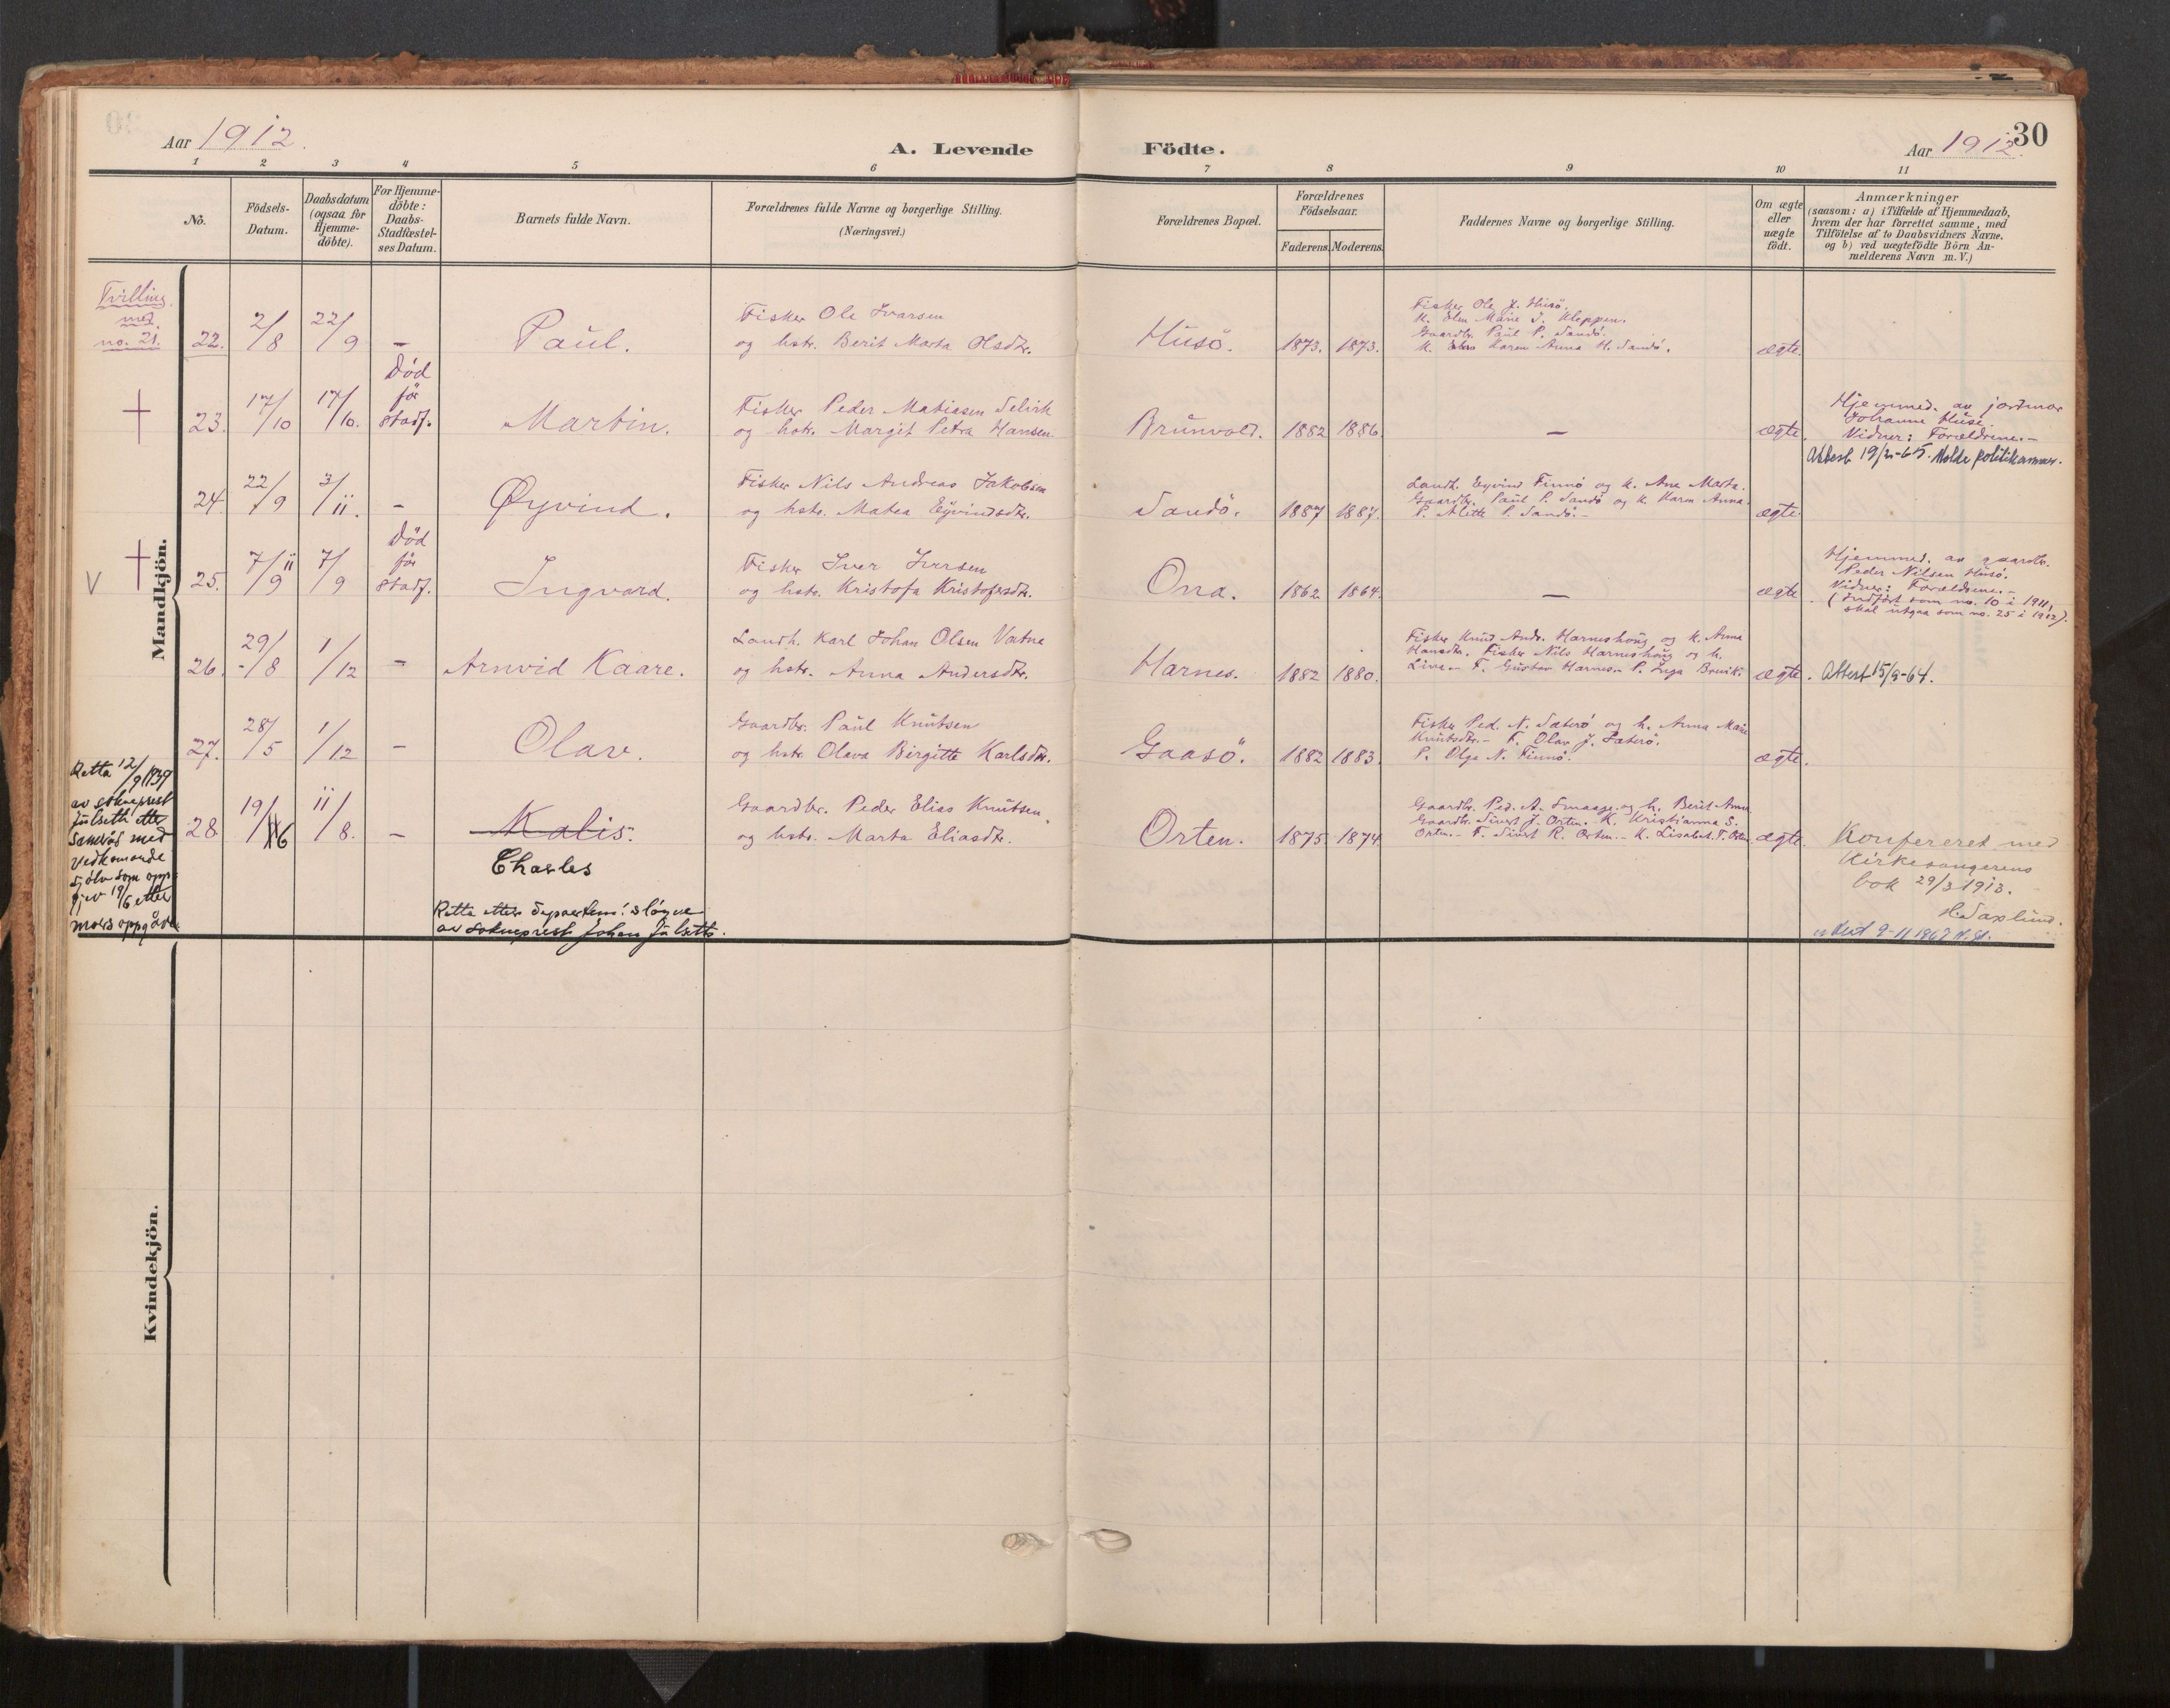 Aar 1912.
A. Levende Födte.
Aar 1912.
30
1 2 3 4 5 6 7 8 9 10 11
No.
Födsels-Datum.
Daabsdatum (ogsaa for Hjemme-döbte).
For Hjemme-döbte: Daabs-Stadfæstel-ses Datum.
Barnets fulde Navn.
Forældrenes fulde Navne og borgerlige Stilling.
(Næringsvei.)
Forældrenes Bopæl.
Forældrenes Födselsaar.
Faderens. Moderens.
Faddernes Navne og borgerlige Stilling.
Om ægte eller uægte födt.
Anmærkninger
(saasom: a) i Tilfælde af Hjemmedaab,
hvem der har forrettet samme, med
Tilföielse af to Daabsvidners Navne,
og b) ved uægtefödte Börn An-
melderens Navn m. V.)
Mandkjön.
Tvilling
med
no. 21.
22. 2/8 22/9 - Paul.
Fisker Ole Ivarsen
og hstr. Berit Marta Olsdtr.
Husö. 1873. 1873.
Fisker Ole J. Husö.
K. Elen Marie J. Kloppen.
Gaardbr. Paul P. Sandö.
K. Karen Anna H. Sandö.
ægte.
† 23. 17/10 17/10. Död før stadf. Martin.
Fisker Peder Matiasen Selvik
og hstr. Margit Petra Hansen.
Brunvold. 1882 1886. — ægte.
Hjemmed. av jordmor
Johanne Huse.
Vidner: Forældrene.-
Attest 19/2-65. Molde politikammer.
24. 22/9 3/11. - Øyvind.
Fisker Nils Andreas Jakobsen
og hstr. Matea Eyvindsdtr.
Sandö. 1887 1887.
Landh. Eyvind Finnö og K. Ane Marta.
Gaardbr. Paul P. Sandö og K. Karen Anna.
P. Alette P. Sandö.-
ægte.
V † 25. 7/9 11 7/9 Död før stadf. Ingvard.
Fisker Iver Iversen
og hstr. Kristofa Kristofersdtr.
Ona. 1862 1864. — ægte
Hjemmed. av gaardbr.
Peder Nilsen Husö.
Vidner: Forældrene.-
(Indført som no. 10 i 1911,
skal utgaa som no. 25 i 1912).
26. 29/8 1/12 - Arnvid Kaare.
Landh. Karl Johan Olsen Vatne
og hstr. Anna Andersdtr.
Harnes. 1882 1880.
Fisker Knud Andr. Harneshoug og K. Anna
Hansdtr. Fisker Nils Harneshoug og h.
Line.- F. Gustav Harnes.- P. Inga Breivik.
ægte. Attest 15/9-64.
27. 28/5 1/12 - Olav.
Gaardbr. Paul Knutsen
og hstr. Olava Birgitte Karlsdtr.
Gaasö. 1882 1883.
Fisker Ped. N. Sæterö og h. Anna Marie
Knutsdtr.- F. Olav J. Sæterö.
P. Olga N. Finnö.
ægte.
Retta 12/9 1939
av sokneprest
Julseth etter
samråd med
vedkomande
sjølv som opp-
gjev 19/6 etter
mors oppgåve.
28. 19/6 11/8. - Malis.
Charles
Gaardbr. Peder Elias Knutsen.
og hstr. Marta Eliasdtr.
Orten. 1875. 1874
Gaardbr. Ped. A. Smaage og h. Berit Anna.
Gaardbr. Sivert J. Orten. K. Kristianna S.
Orten.- F. Sivert R. Orten.- K. Lisabet T. Orten
ægte.
Konfereret med
Kirkesangerens
bok 29/3 1913.
H. Saxlund.
9-11 1967
Retta etter departem: s løyve
av sokneprest Johan Julseth.
Kvindekjön.